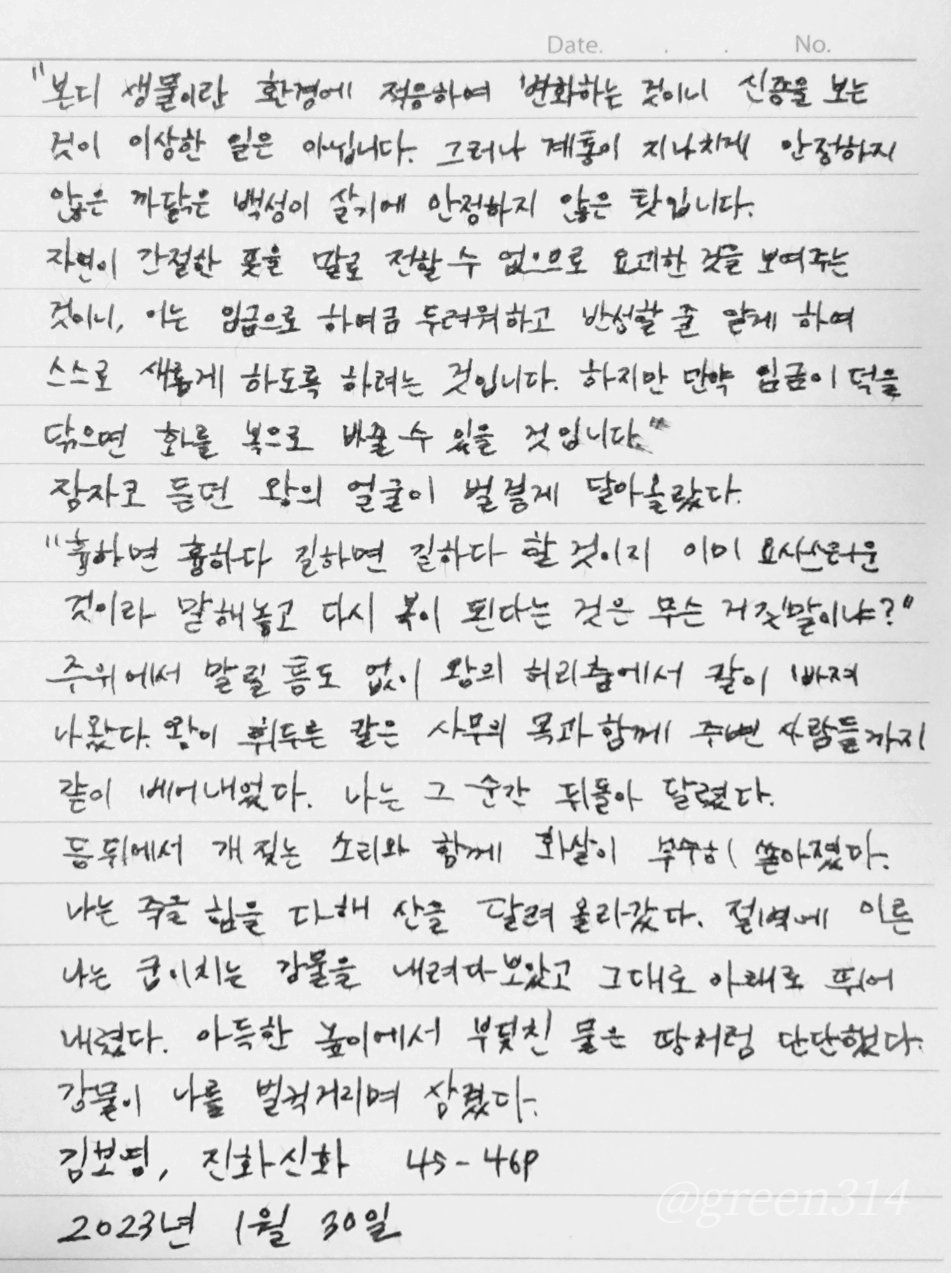 Date. . . No.
"본디 생물이란 환경에 적응하여 변화하는 것이니 신종을 보는
것이 이상한 일은 아닙니다. 그러나 계통이 지나치게 안정하지
않은 까닭은 백성이 살기에 안정하지 않은 탓입니다.
자연이 간절한 뜻을 말로 전할 수 없으므로 요괴한 것을 보여주는
것이니, 이는 임금으로 하여금 두려워하고 반성할 줄 알게 하여
스스로 새롭게 하도록 하려는 것입니다. 하지만 만약 임금이 덕을
닦으면 화를 복으로 바꿀 수 있을 것입니다."
잠자코 듣던 왕의 얼굴이 벌겋게 달아올랐다.
"흉하면 흉하다 길하면 길하다 할 것이지 이미 요사스러운
것이라 말해놓고 다시 복이 된다는 것은 무슨 거짓말이냐?"
주위에서 말릴 틈도 없이 왕의 허리춤에서 칼이 빠져
나왔다. 왕이 휘두른 칼은 사무의 목과 함께 주변 사람들까지
같이 베어내었다. 나는 그 순간 뒤돌아 달렸다.
등 뒤에서 개 짖는 소리와 함께 화살이 무수히 쏟아졌다.
나는 죽을 힘을 다해 산을 달려 올라갔다. 절벽에 이른
나는 굽이치는 강물을 내려다보았고 그대로 아래로 뛰어
내렸다. 아득한 높이에서 부딪친 물은 땅처럼 단단했다.
강물이 나를 벌컥거리며 삼켰다.
김보영, 진화신화 45-46p
2023년 1월 30일
@green314